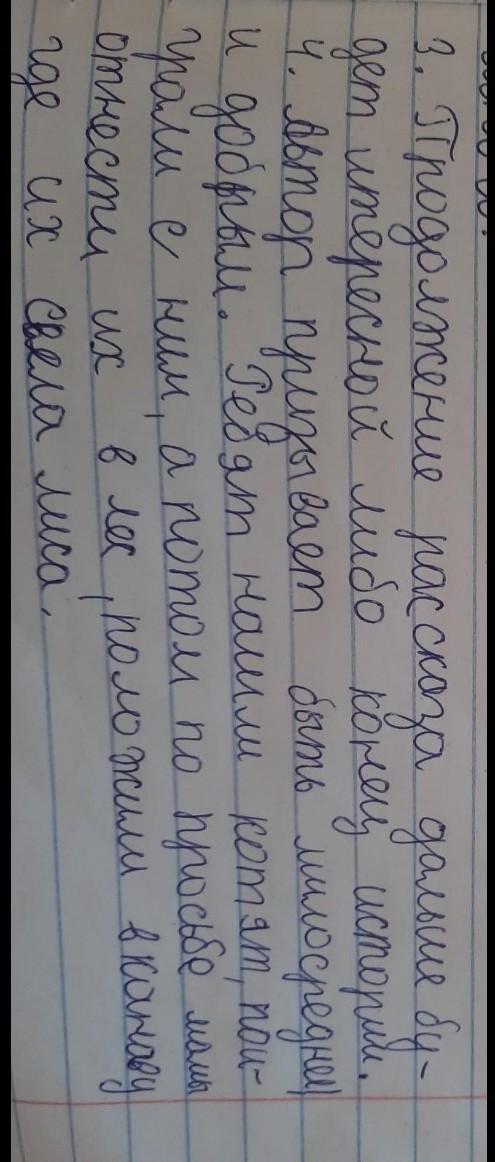 3. Продолжение рассказа дальше бу-
дет итересной либо конец истории.
4. Автор призывает быть
и добрым. Ребят нашли котят, пои-
грали с ним, а потом по просьбе мамы
отнести их в лес, положили в канаву
где их свела лиса.